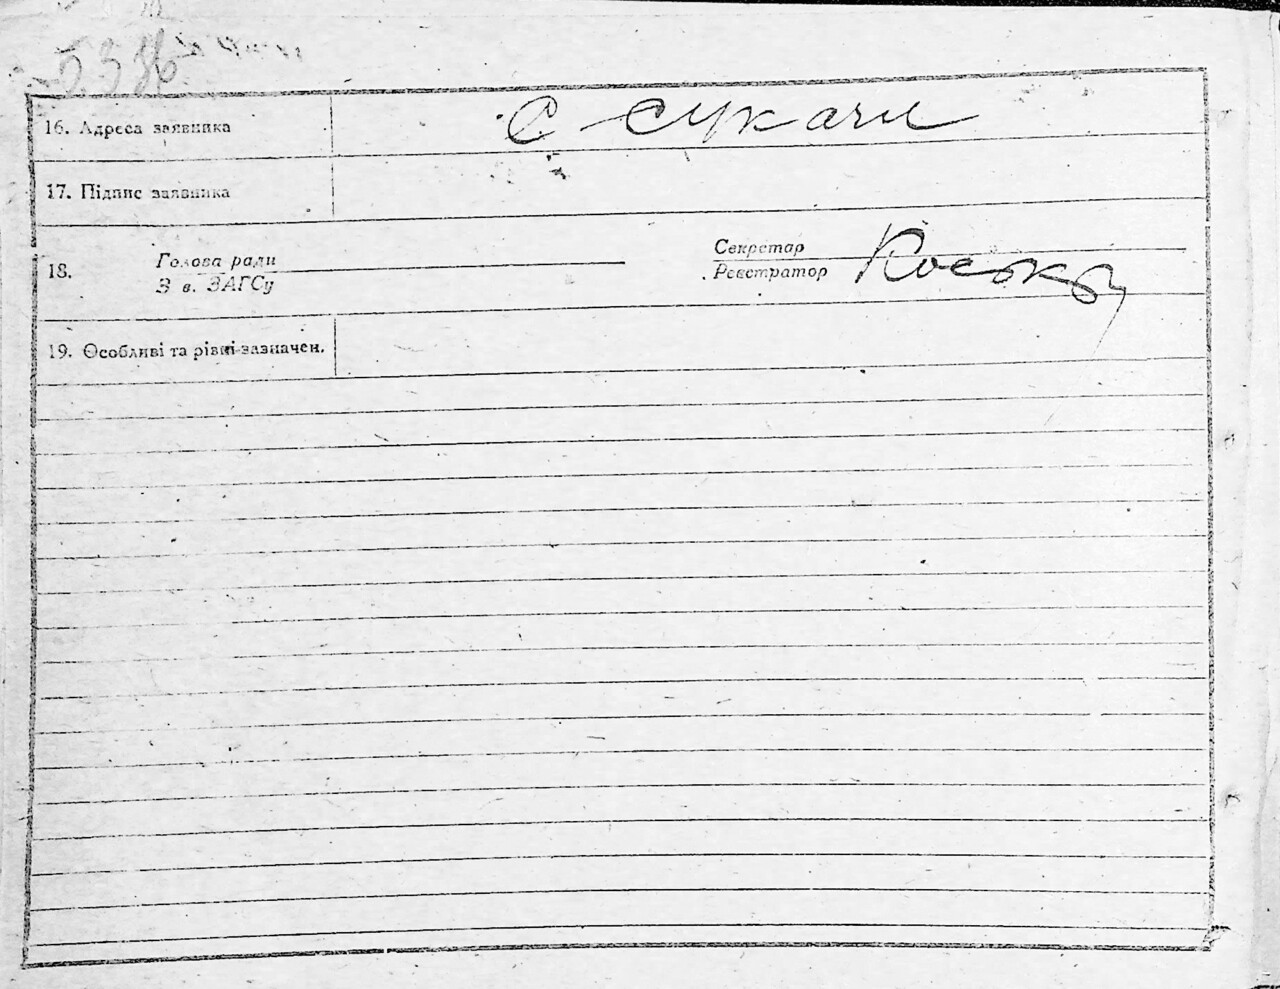 16. Адреса заявника С. Сукачи
17. Підпис заявника
18. Голова ради Секретар
З в. ЗАГСу Реєстратор
19. Особливі та рівні зазначен.